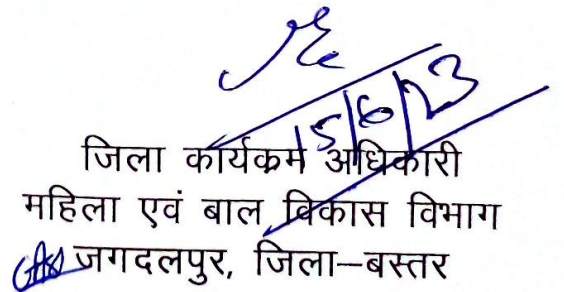 15/6/23
जिला कार्यक्रम अधिकारी
महिला एवं बाल विकास विभाग
जगदलपुर, जिला–बस्तर